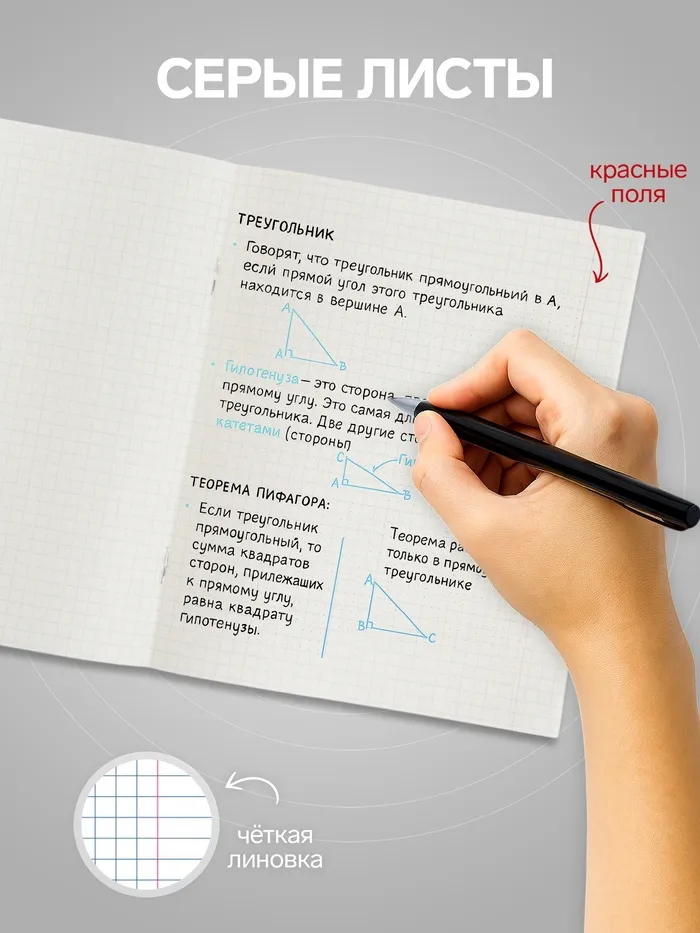 СЕРЫЕ ЛИСТЫ
красные
поля
ТРЕУГОЛЬНИК
Говорят, что треугольник прямоугольный в A,
если прямой угол этого треугольника
находится в вершине A.
A
A
B
Гипотенуза — это сторона
прямому углу. Это самая
треугольника. Две другие
катетами (стороны
C
A
B
ТЕОРЕМА ПИФАГОРА:
Если треугольник
прямоугольный, то
сумма квадратов
сторон, прилежащих
к прямому углу,
равна квадрату
гипотенузы.
Теорема
только в
треугольнике
A
B
C
чёткая
линовка